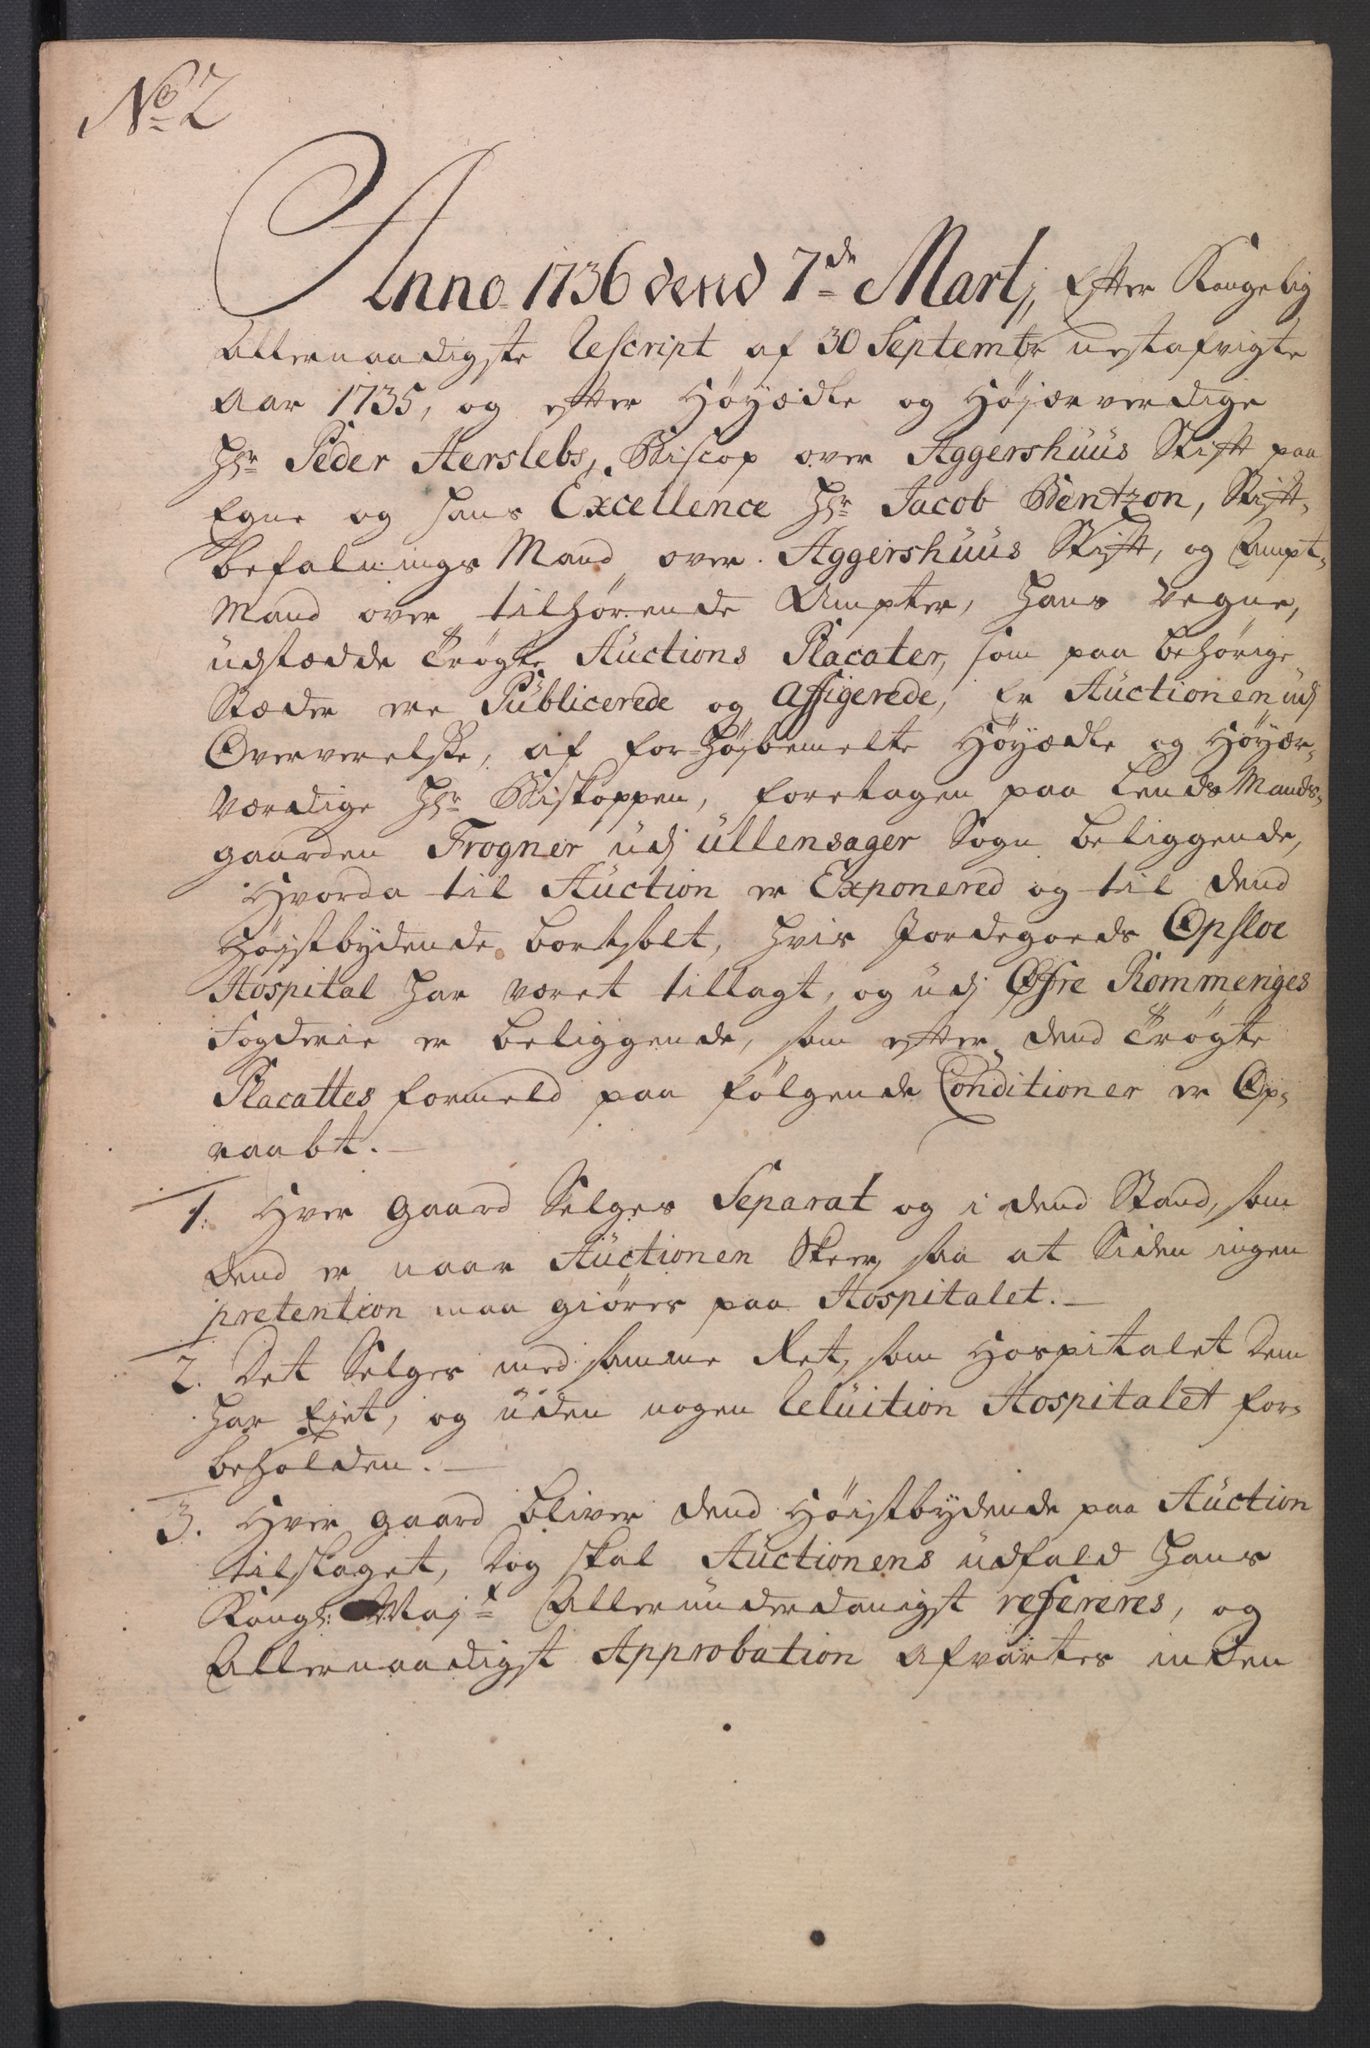 No 2
Anno 1736 dend 7de Martj, Efter Kongelig
Allernaadigste Rescript af 30 Septembr nestafvigte
Aar 1735, og efter Høyædle og Højærverdige
Hr Peder Herslebs, Biscop over Aggershuus Stift paa
Egne og Hans Excellence Hr Jacob Bentzon, Stift-
befalnings Mand over Aggershuus Stift, og Ampt-
Mand over tilhørende Ampter, Hans Vegne,
udstædde Trøgte Auctions Placater, som paa behørige
Stæder ere Publicerede og Affigerede, Er Auctionen udj
Overværelse, af for Højbemelte Høyædle og Høyær-
værdige Hr Biskoppen, foretagen paa Lends Mands-
gaarden Frogner udj Ullensager Sogn beliggende,
Hvorda til Auction er Exponered og til dend
Høistbydende bortsolt, hvis Jordegoeds Opsloe
Hospital har været tillagt, og udj Øfre Rommeriges
Fogderie er beliggende, som efter dend Trøgte
Placattes formeld paa følgende Conditioner er Op-
raabt.
1. Hver gaard Selges Separat og i dend Stand, som
dend er naar Auctionen Skeer, saa at Siden ingen
prætention maa giøres paa Hospitalet.
2. Det Selges med samme Ret, som Hospitalet dem
har Ejet, og uden nogen Reluition Hospitalet for-
beholden.
3. Hver gaard bliver dend Høistbydende paa Auction
tilslaget, dog skal Auctionens udfald Hans
Kongl: Majt Allerunderdanigst refereres, og
Allernaadigst Approbation afvartes inden